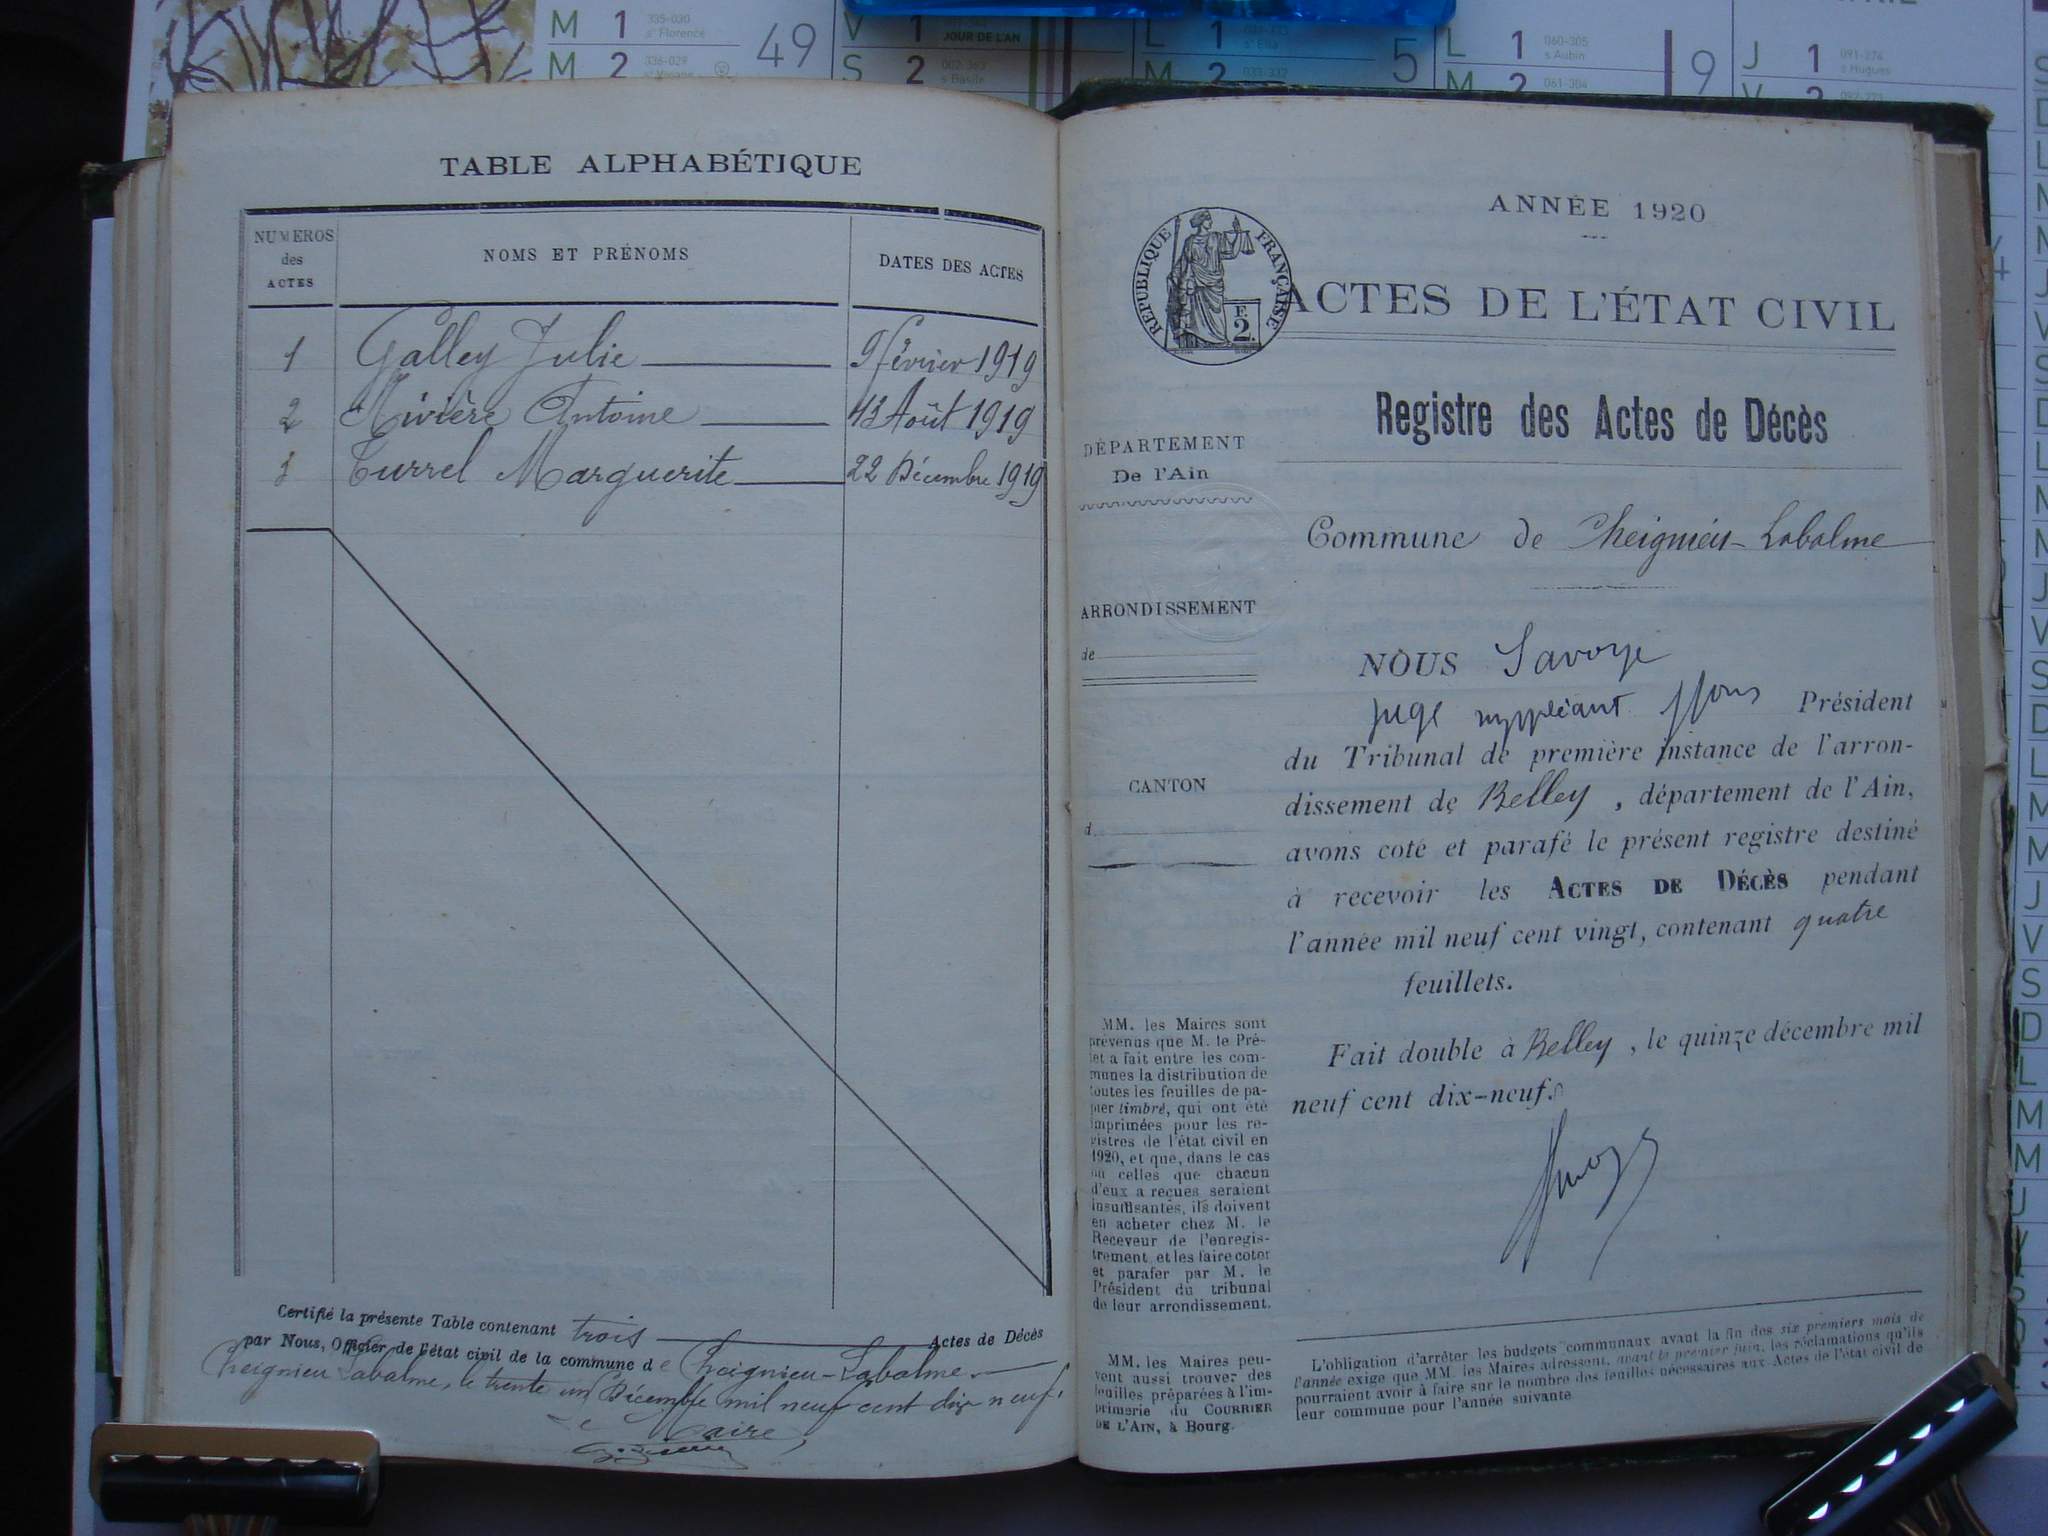 M 1 335-030 sᵗᵉ Florence 49
M 2 336-029
V 1 JOUR DE L'AN
S 2 002-363 s Basile
L 1 sᵗᵉ Ella 5
M 2 033-332
L 1 060-305 s Aubin 9
M 2 061-304
J 1 091-274 s Hugues
V 2
TABLE ALPHABÉTIQUE
NUMEROS des ACTES
NOMS ET PRÉNOMS
DATES DES ACTES
1 Galley Julie 9 février 1919
2 Rivière Antoine 13 Août 1919
3 Turrel Marguerite 22 Décembre 1919
Certifié la présente Table contenant trois Actes de Décès
par Nous, Officier de l'état civil de la commune de Cheignieu-Labalme.
Cheignieu Labalme, le trente un Décembre mil neuf cent dix neuf.
Le Maire,
ANNÉE 1920
RÉPUBLIQUE FRANÇAISE
F. 2.
ACTES DE L'ÉTAT CIVIL
Registre des Actes de Décès
DÉPARTEMENT
De l'Ain
Commune de Cheignieu-Labalme
ARRONDISSEMENT
de
CANTON
d
NOUS Savoye
Juge suppléant ffons Président
du Tribunal de première instance de l'arron-
dissement de Belley, département de l'Ain,
avons coté et parafé le présent registre destiné
à recevoir les ACTES DE DÉCÈS pendant
l'année mil neuf cent vingt, contenant quatre
feuillets.
Fait double à Belley, le quinze décembre mil
neuf cent dix-neuf.
MM. les Maires sont
prévenus que M. le Pré-
fet a fait entre les com-
munes la distribution de
toutes les feuilles de pa-
pier timbré, qui ont été
imprimées pour les re-
gistres de l'état civil en
1920, et que, dans le cas
où celles que chacun
d'eux a reçues seraient
insuffisantes, ils doivent
en acheter chez M. le
Receveur de l'enregis-
trement et les faire coter
et parafer par M. le
Président du tribunal
de leur arrondissement.
MM. les Maires peu-
vent aussi trouver des
feuilles préparées à l'im-
primerie du COURRIER
DE L'AIN, à Bourg.
L'obligation d'arrêter les budgets communaux avant la fin des six premiers mois de
l'année exige que MM. les Maires adressent, avant le premier juin, les réclamations qu'ils
pourraient avoir à faire sur le nombre des feuilles nécessaires aux Actes de l'état civil de
leur commune pour l'année suivante